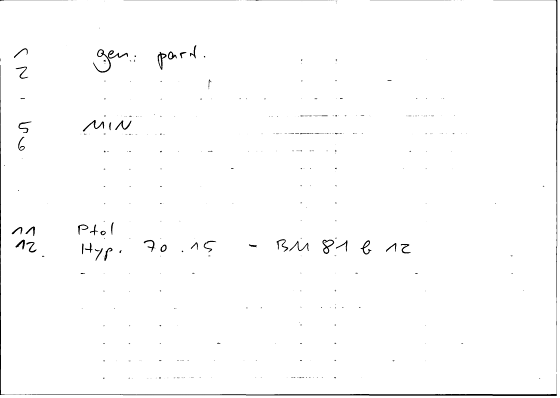 1 gen. part.
2
-
5 MIN
6
11 Ptol
12. Hyp. 70.15 - BM 81 b 12